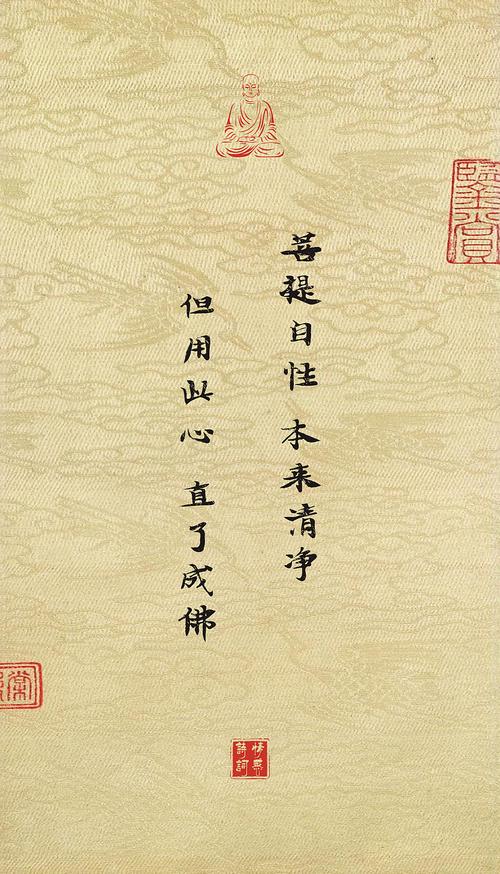 菩提自性 本来清净
但用此心 直了成佛
鑑賞